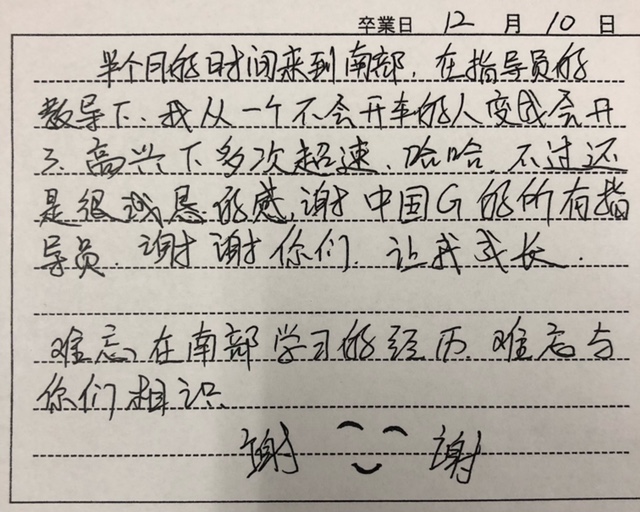 卒業日 12 月 10 日
半个月的时间来到南部，在指导员的
教导下、我从一个不会开车的人变成会开
了、高兴下多次超速、哈哈、不过还
是很诚恳的感谢中国G的所有指
导员、谢谢你们、让我成长.
难忘在南部学习的经历、难忘与
你们相识.
谢 谢